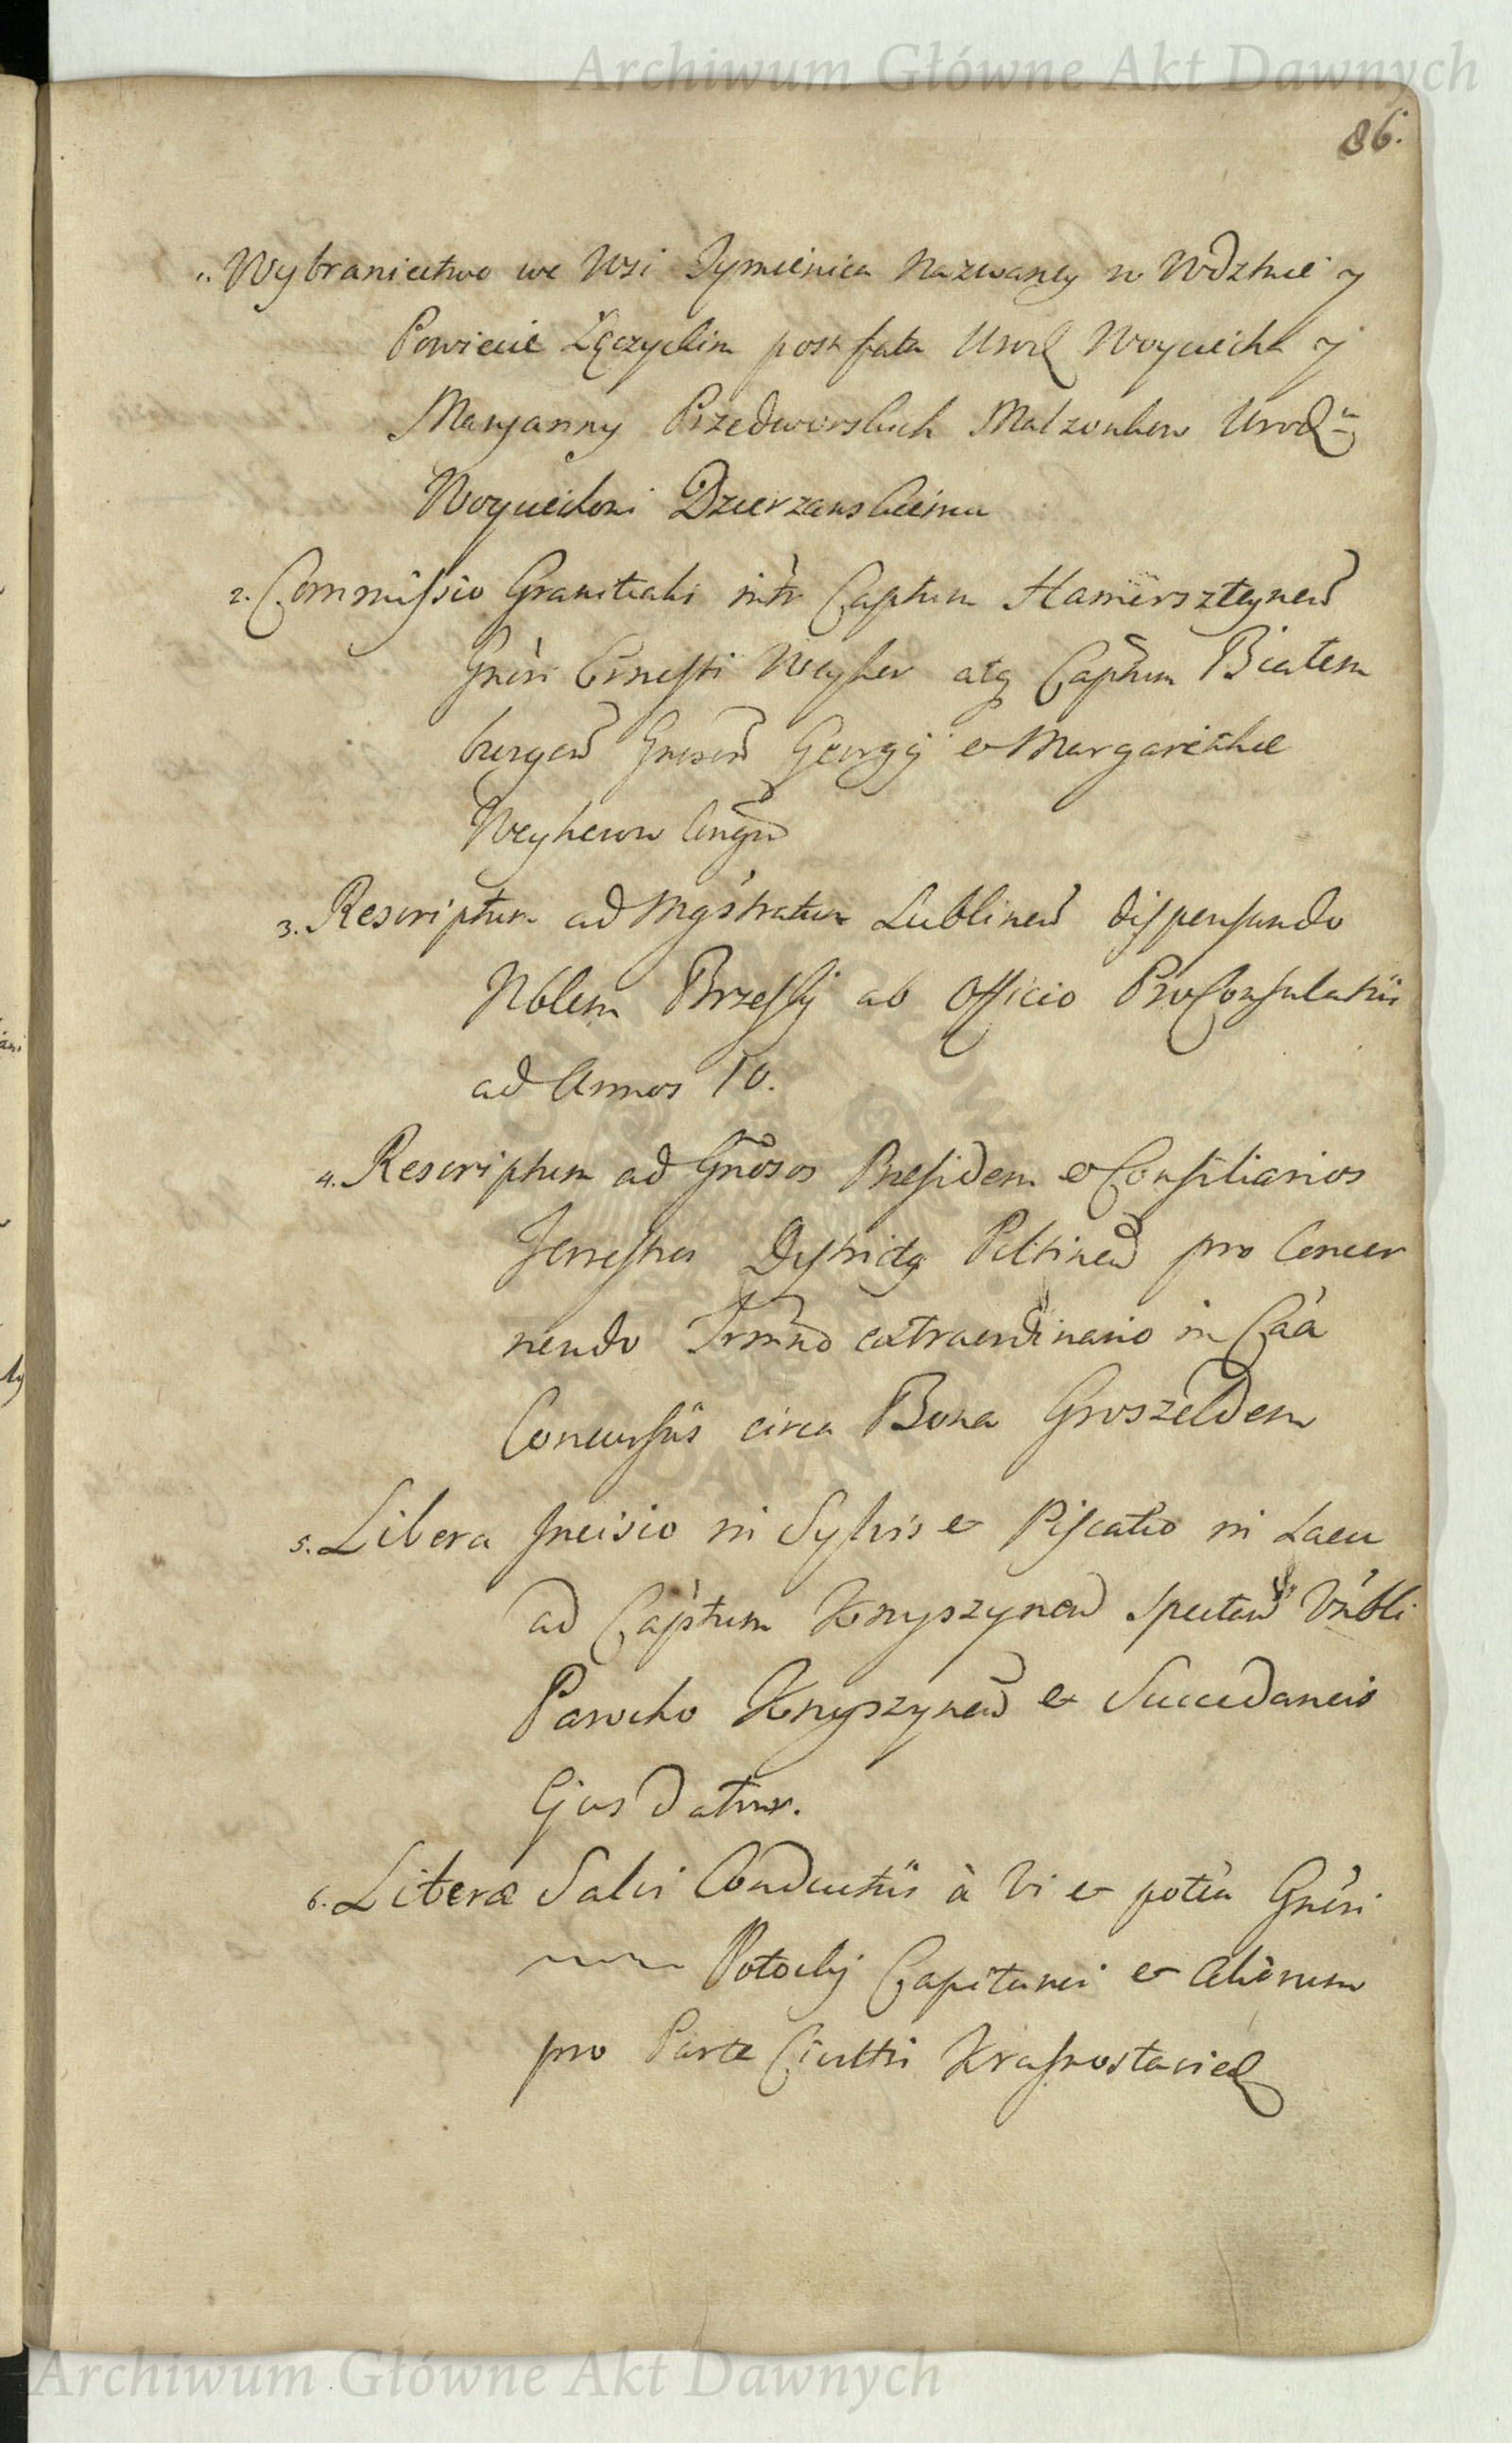 Archiwum Główne Akt Dawnych
86.
1. Wybraniectwo we Wsi Tymienica Nazwaney w Wdztwie y
Powiecie Łęczyckim post fata Urod Woyciecha y
Maryanny Przedworskich Malzonkow Urod
Woyciechowi Dzierzanskiemu
2. Commissio Granitialis intr Captum Hamersztynen
Gnesi Ernesti Weyher atq Captum Biatem
burgen Gnesor Georgij et Margarethae
Weyherow Congu
3. Rescriptum ad Mgstratum Lublinen dispensando
Nblem Brzeski ab Officio ProConsulatus
ad Annos 10.
4. Rescriptum ad Gnosos Presidem et Consiliarios
Terrestres Dystrictq Piltinen pro Concer
nendo Trmno extraordinario in Caa
Concursus circa Bona Groszeldem
5. Libera Incisio in Sylvis et Piscatio in Lacu
ad Captum Knyszynen Spectan Vnbli
Parocho Knyszynen et Succedaneis
Ejus datur.
6. Literae Salvi Conductus à Vi et potia Gnesi
Potocky Capitanei et Aliorum
pro Parte Civitti Krasnostavien
Archiwum Główne Akt Dawnych